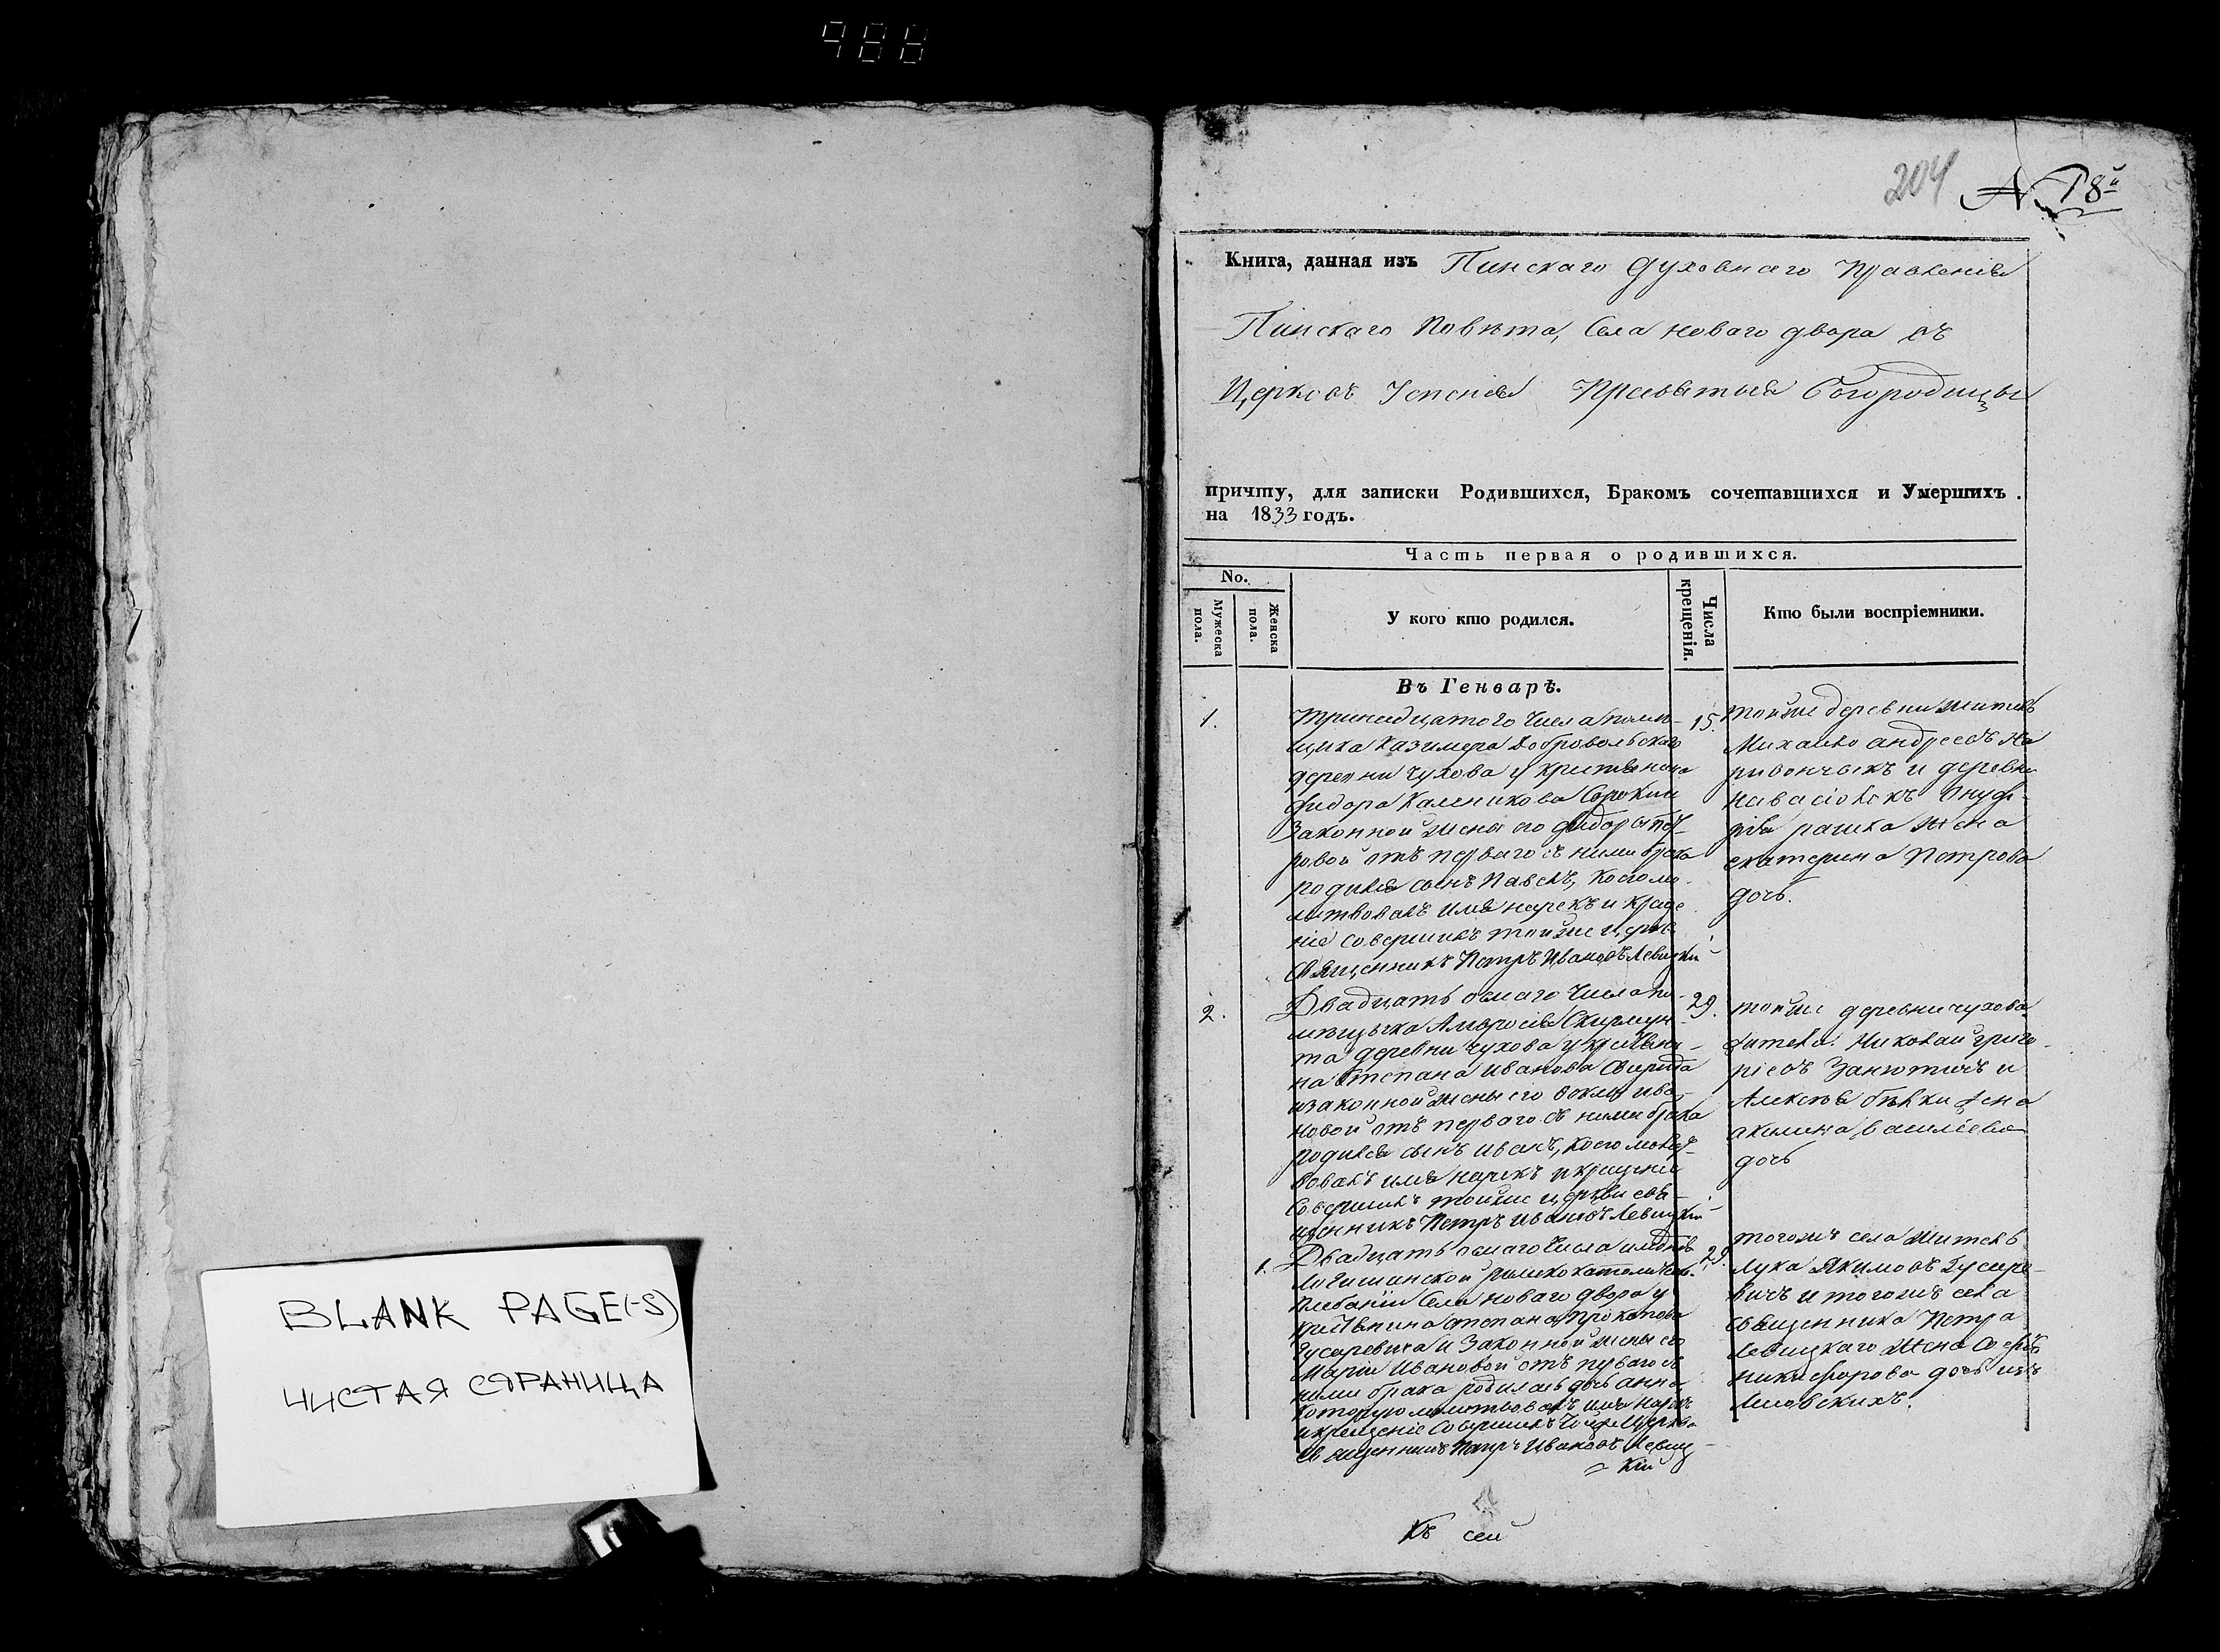 988
BLANK PAGE(-S)
ЧИСТАЯ СТРАНИЦА
204 N. 18й
Книга, данная изъ Пинскаго Духовнаго Правленія
Пинскаго Повѣта, Села Новаго двора въ
Церковь Успенія Пресвятыя Богородицы
причту, для записки Родившихся, Бракомъ сочетавшихся и Умершихъ.
на 1833 годъ.
Часть первая о родившихся.
No.
Мужеска пола.
Женска пола.
У кого кто родился.
Числа крещенія.
Кто были воспріемники.
Въ Генварѣ.
1.
тринадцатого Числа помѣ-
щика Казимера Добровольскаго
деревни Чухова у крестянина
Фидора Каленикова Сорокии
Законной жены его
ровой отъ перваго съ ними брака
родился сынъ Павелъ, коего мо-
литвовалъ имя нарекъ и креще
ніе совершилъ тойже церкв
Священникъ Петръ Ивановъ Левицкій
15.
тойже деревни житель
Михайло андреевъ
и деревни
жена
екатерина Петрова
дочь.
2.
Двадцать осмаго Числа по-
мѣщыка Амвросія Скирмун-
та деревни Чухова у крестяни-
на Степана Иванова Свирида
и законной жены его Феклы ива-
новой отъ перваго съ ними брака
родился сынъ иванъ, коего молит-
вовалъ имя нарекъ и крещеніе
Совершилъ тойже церкви свя-
щенникъ Петръ ивановъ Левицкій
29.
тойже деревни чухова
жители: Николай григо-
ріевъ и
Алексѣя жена
акилина василіева
дочь
1.
Двадцать осмаго Числа имѣнія
Логишинской римскокатолической
Плебаніи Села Новаго двора у
крестянина степана Прокопова
Гусаревича и Законной жены его
Маріи Ивановой отъ перваго съ
ними брака родилась дочь анна
которую молитвовалъ имя нарекъ
и крещеніе Совершилъ тойже Церкви
Священникъ Петръ Ивановъ Левиц-
кій
29.
тогожъ села житель
Лука Якимовъ Гусаре-
вичъ и тогожъ села
священника Петра
Левицкаго жена Софія
никифорова дочь изъ
Лисовскихъ.
Къ сей